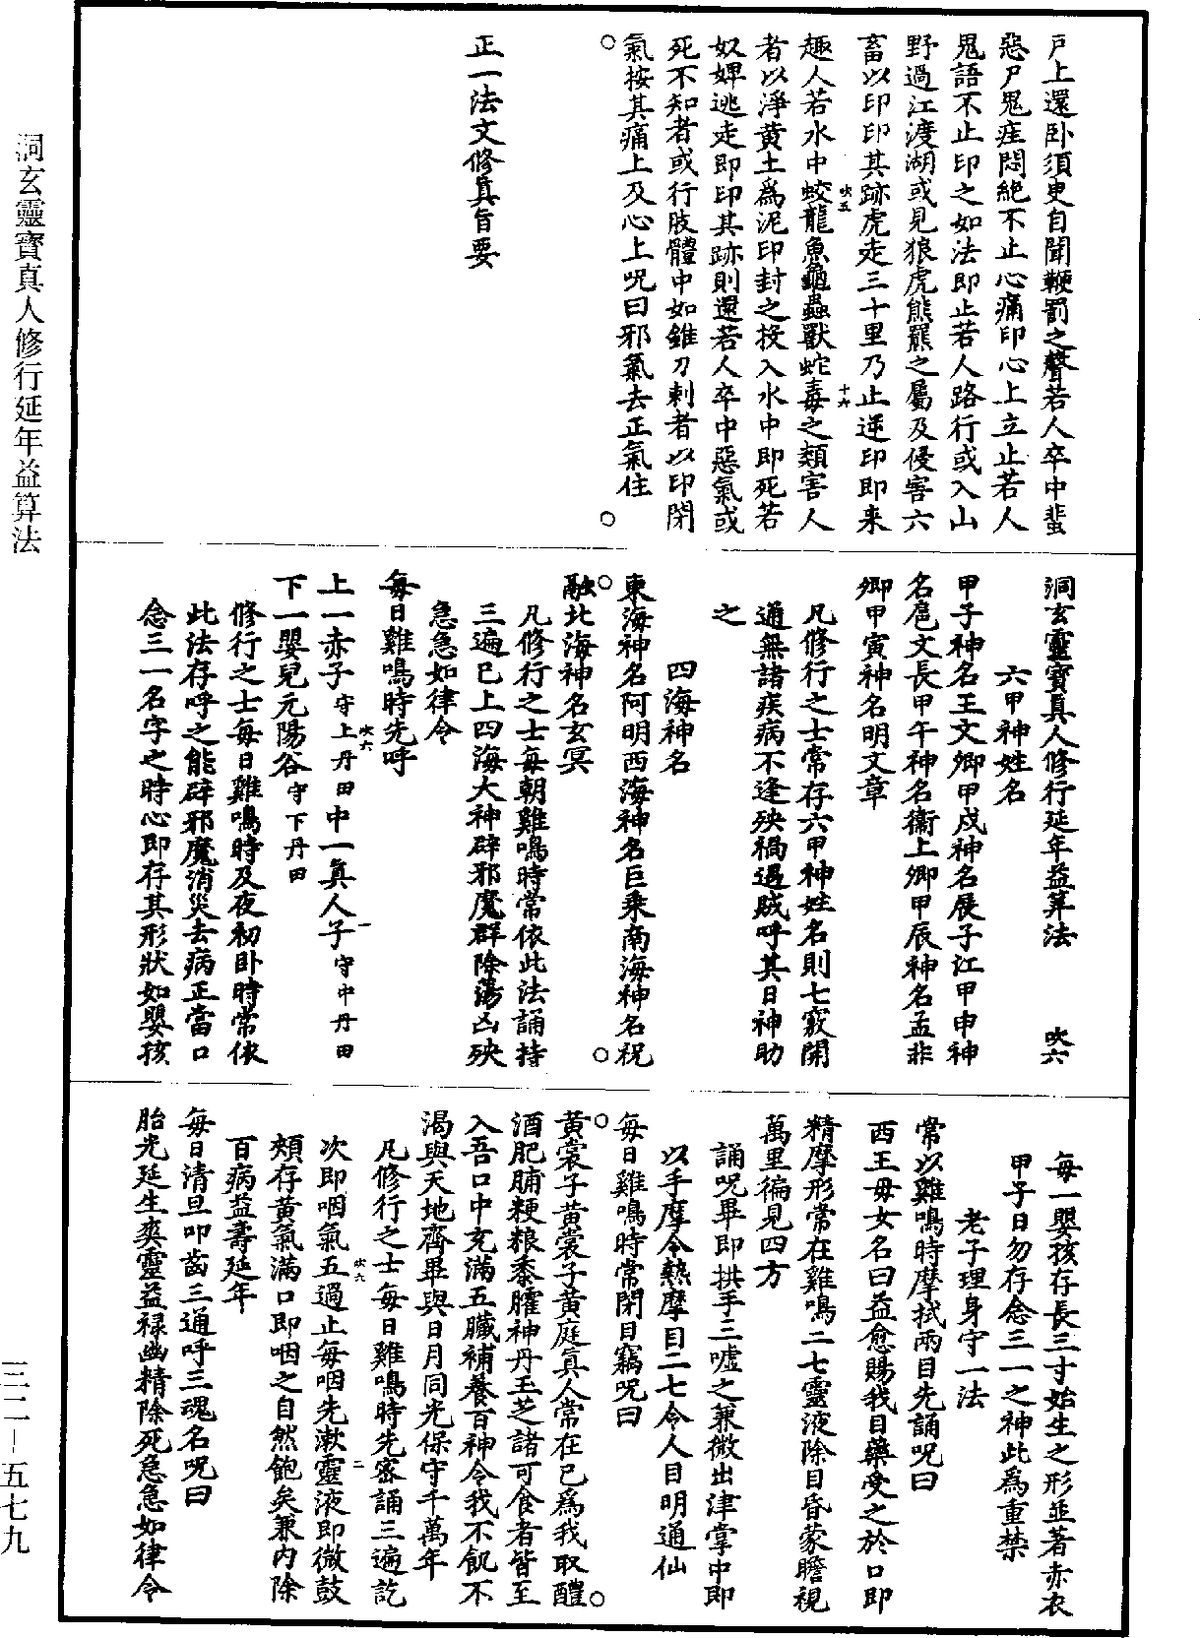 戶上還卧須臾自聞鞭罰之聲若人卒中蜚
惡尸鬼疰悶絶不止心痛印心上立止若人
鬼語不止印之如法即止若人路行或入山
野過江渡湖或見狼虎熊羆之屬及侵害六
畜以印印其跡虎走三十里乃止逆印即来
吹五
十六
趣人若水中蛟龍魚龜蟲獸蛇毒之類害人
者以淨黄土爲泥印封之投入水中即死若
奴婢逃走即印其跡則還若人卒中惡氣或
死不知者或行肢體中如錐刀刺者以印閉
氣按其痛上及心上呪曰邪氣去正氣住
正一法文修真旨要
洞玄靈寶真人修行延年益筭法
吹六
六甲神姓名
甲子神名王文卿甲戌神名展子江甲申神
名扈文長甲午神名衞上卿甲辰神名孟非
卿甲寅神名明文章
凡修行之士常存六甲神姓名則七竅開
通無諸疾病不逢殃禍遇賊呼其日神助
之
四海神名
東海神名阿明西海神名巨乘南海神名祝
融北海神名玄冥
凡修行之士每朝雞鳴時常依此法誦持
三遍已上四海大神辟邪魔群除蕩凶殃
急急如律令
每日雞鳴時先呼
吹六
一
上一赤子守上丹田中一真人子守中丹田
下一嬰兒元陽谷守下丹田
修行之士每日雞鳴時及夜初卧時常依
此法存呼之能辟邪魔消災去病正當口
念三一名字之時心即存其形狀如嬰孩
每一嬰孩存長三寸始生之形並著赤衣
甲子日勿存念三一之神此爲重禁
老子理身守一法
常以雞鳴時摩拭兩目先誦呪曰
西王母女名曰益愈賜我目藥受之於口即
精摩形常在雞鳴二七靈液除目昏蒙瞻視
萬里徧見四方
誦呪畢即拱手三噓之兼微出津掌中即
以手摩令熱摩目二七令人目明通仙
每日雞鳴時常閉目竊呪曰
黄裳子黄裳子黄庭真人常在己爲我取醴
酒肥脯粳粮黍臛神丹玉芝諸可食者皆至
入吾口中充滿五臟補養百神令我不飢不
渴與天地齊畢與日月同光保守千萬年
凡修行之士每日雞鳴時先密誦三遍訖
吹六
二
次即咽氣五過止每咽先漱靈液即微鼓
頰存黄氣滿口即咽之自然飽矣兼内除
百病益壽延年
每日清旦叩齒三通呼三魂名呪曰
胎光延生爽靈益禄幽精除死急急如律令
洞玄靈寶真人修行延年益算法
三二—五七九